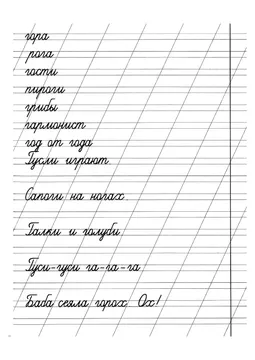 гора
рога
гости
пироги
грибы
гармонист
год от года
Гусли играют.
Сапоги на ногах.
Галки и голуби.
Гуси-гуси га-га-га
Баба сеяла горох. Ох!